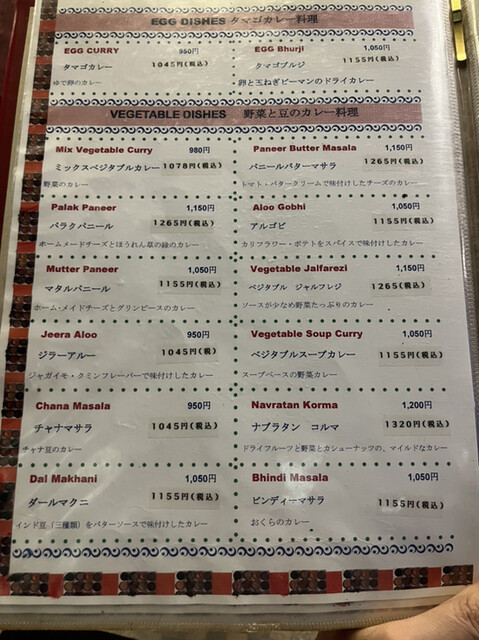 EGG DISHES タマゴカレー料理
EGG CURRY 950円
タマゴカレー 1045円(税込)
ゆで卵のカレー
EGG Bhurji 1,050円
タマゴブルジ 1155円(税込)
卵と玉ねぎピーマンのドライカレー
VEGETABLE DISHES 野菜と豆のカレー料理
Mix Vegetable Curry 980円
ミックスベジタブルカレー 1078円(税込)
野菜のカレー
Paneer Butter Masala 1,150円
パニールバターマサラ 1265円(税込)
トマト・バタークリームで味付けしたチーズのカレー
Palak Paneer 1,150円
パラクパニール 1265円(税込)
ホームメードチーズとほうれん草の緑のカレー
Aloo Gobhi 1,050円
アルゴビ 1155円(税込)
カリフラワー・ポテトをスパイスで味付けしたカレー
Mutter Paneer 1,050円
マタルパニール 1155円(税込)
ホーム・メイドチーズとグリンピースのカレー
Vegetable Jalfarezi 1,150円
ベジタブル ジャルフレジ 1265(税込)
ソースが少なめ野菜たっぷりのカレー
Jeera Aloo 950円
ジラーアルー 1045円(税)
ジャガイモ・クミンフレーバーで味付けしたカレー
Vegetable Soup Curry 1,050円
ベジタブルスープカレー 1155円(税込)
スープベースの野菜カレー
Chana Masala 950円
チャナマサラ 1045円(税込)
チャナ豆のカレー
Navratan Korma 1,200円
ナブラタン コルマ 1320円(税込)
ドライフルーツと野菜とカシューナッツの、マイルドなカレー
Dal Makhani 1,050円
ダールマクニ 1155円(税込)
インド豆(三種類)をバターソースで味付けしたカレー
Bhindi Masala 1,050円
ビンディーマサラ 1155円(税込)
おくらのカレー